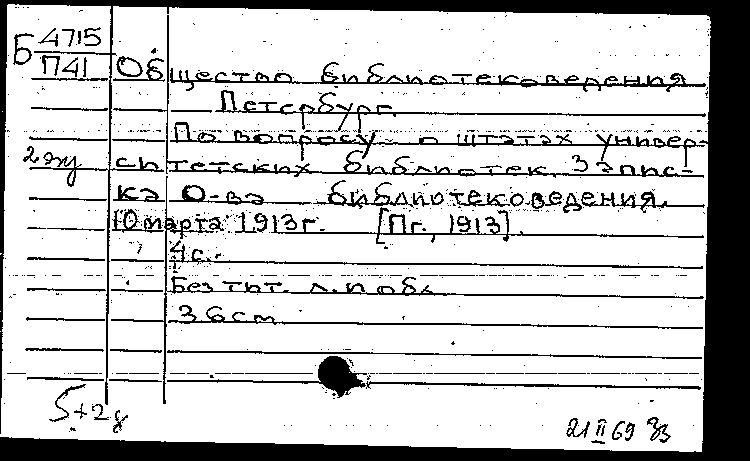 Б 4715
П41
Общество библиотековедения
Петербург.
По вопросу о штатах универ-
2 экз
ситетских библиотек. Запис-
ка О-ва библиотековедения.
10 марта 1913 г. [Пг., 1913].
4 с.
Без тит. л. и обл
36 см
5+2
21 II 69